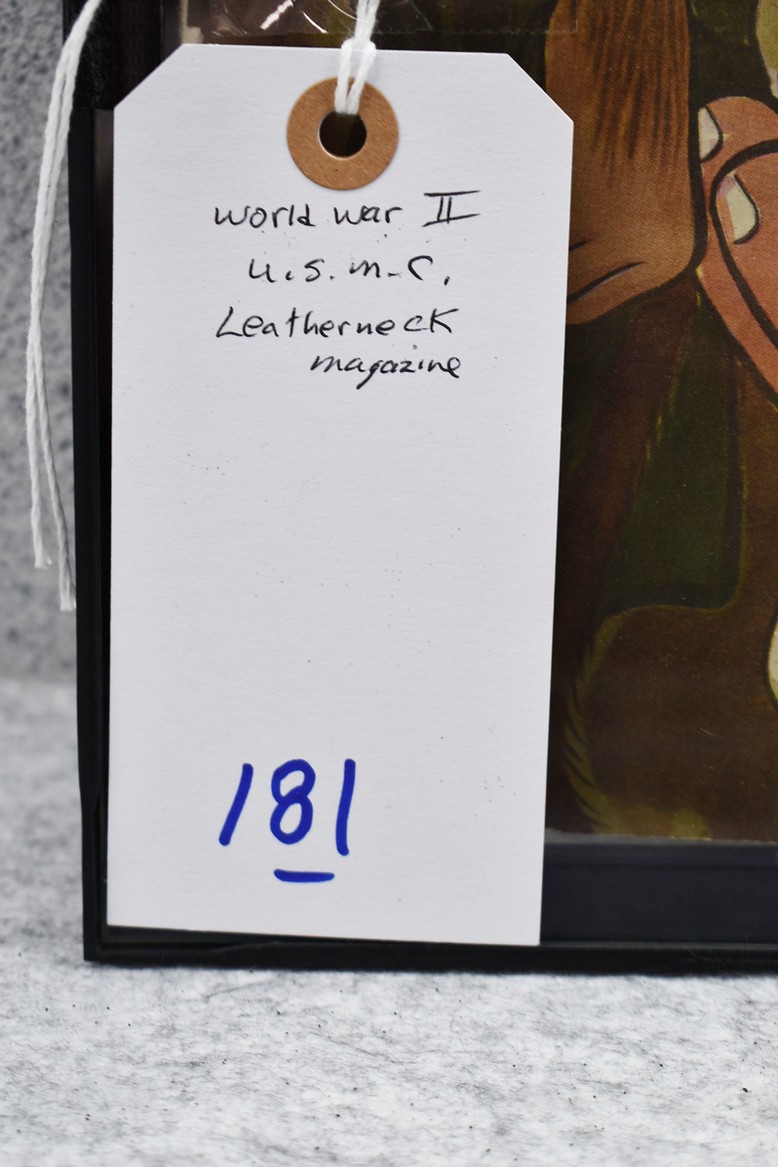 World War II
U.S.M.C.
Leatherneck
magazine
181